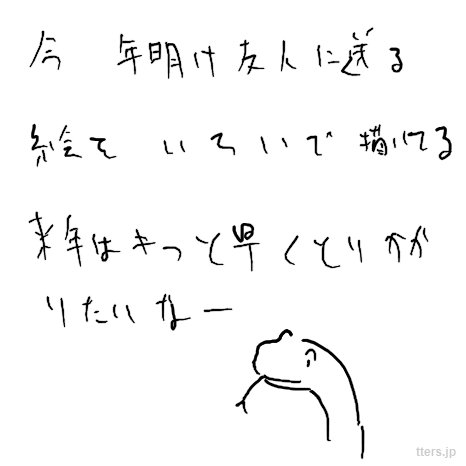 今 年明け友人に送る
絵を いそいで描いてる
来年はきっと早くとりかか
りたいなー
tters.jp